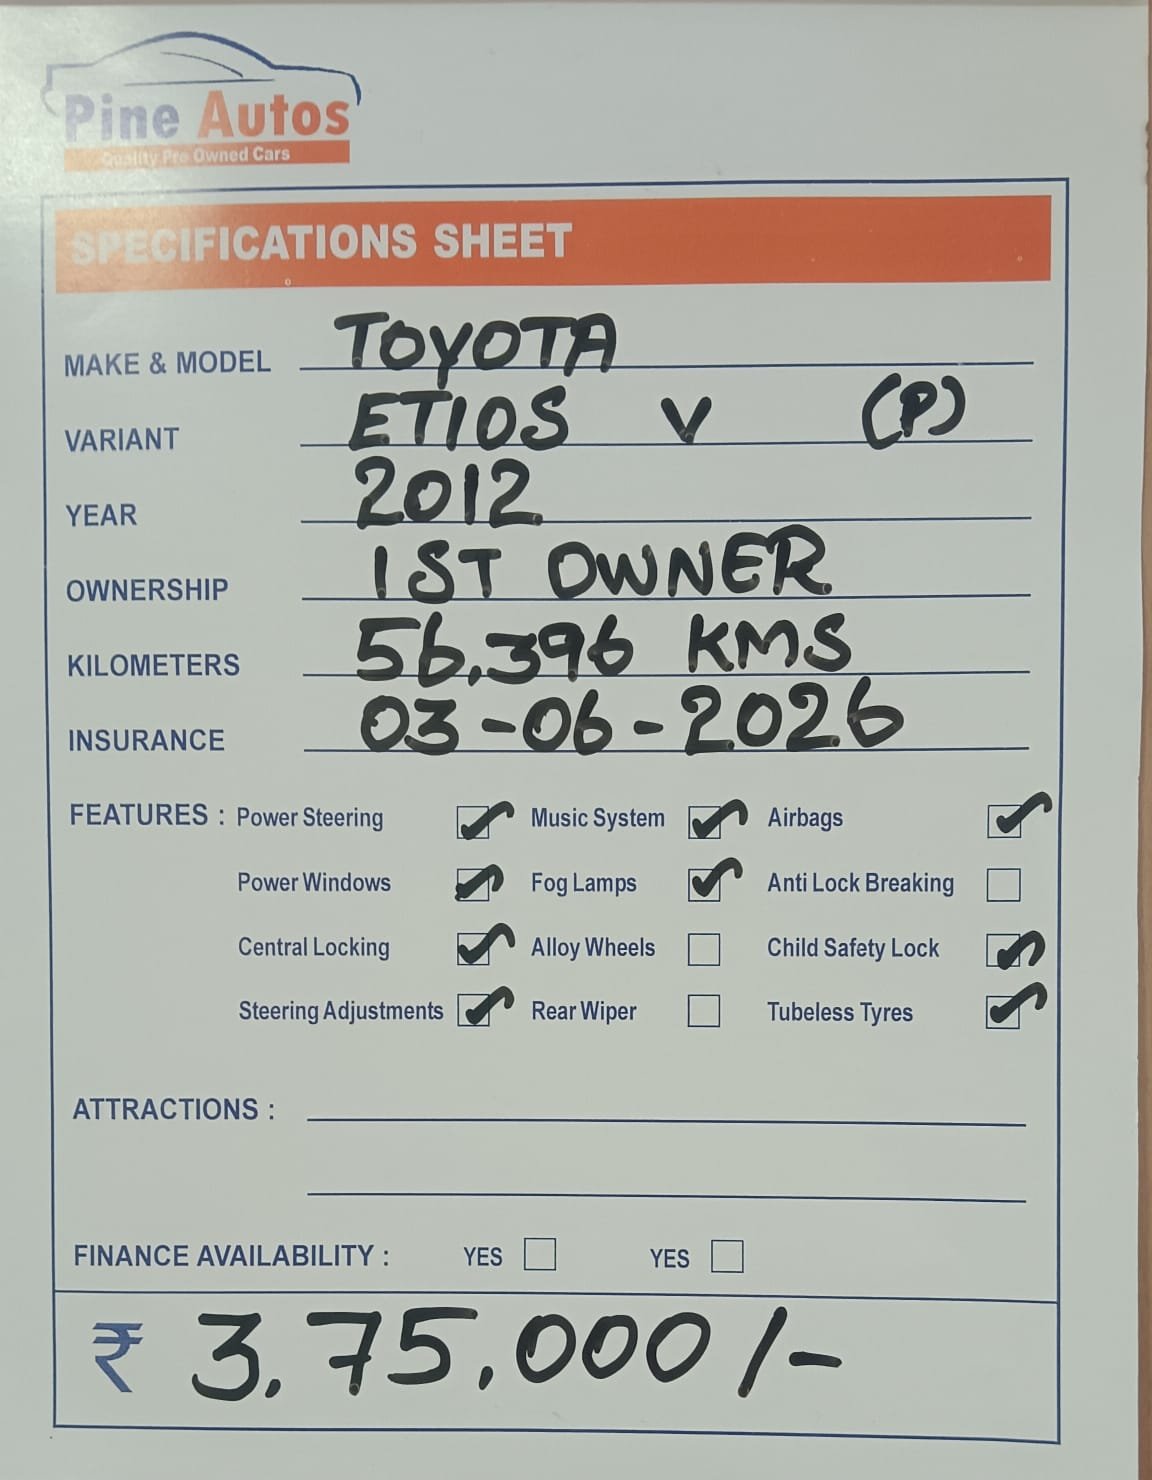 Pine Autos
Quality Pre Owned Cars
SPECIFICATIONS SHEET
MAKE & MODEL TOYOTA
VARIANT ETIOS V (P)
YEAR 2012
OWNERSHIP 1ST OWNER
KILOMETERS 56,396 KMS
INSURANCE 03-06-2026
FEATURES : Power Steering Music System Airbags
Power Windows Fog Lamps Anti Lock Breaking
Central Locking Alloy Wheels Child Safety Lock
Steering Adjustments Rear Wiper Tubeless Tyres
ATTRACTIONS :
FINANCE AVAILABILITY : YES YES
₹ 3,75,000/-